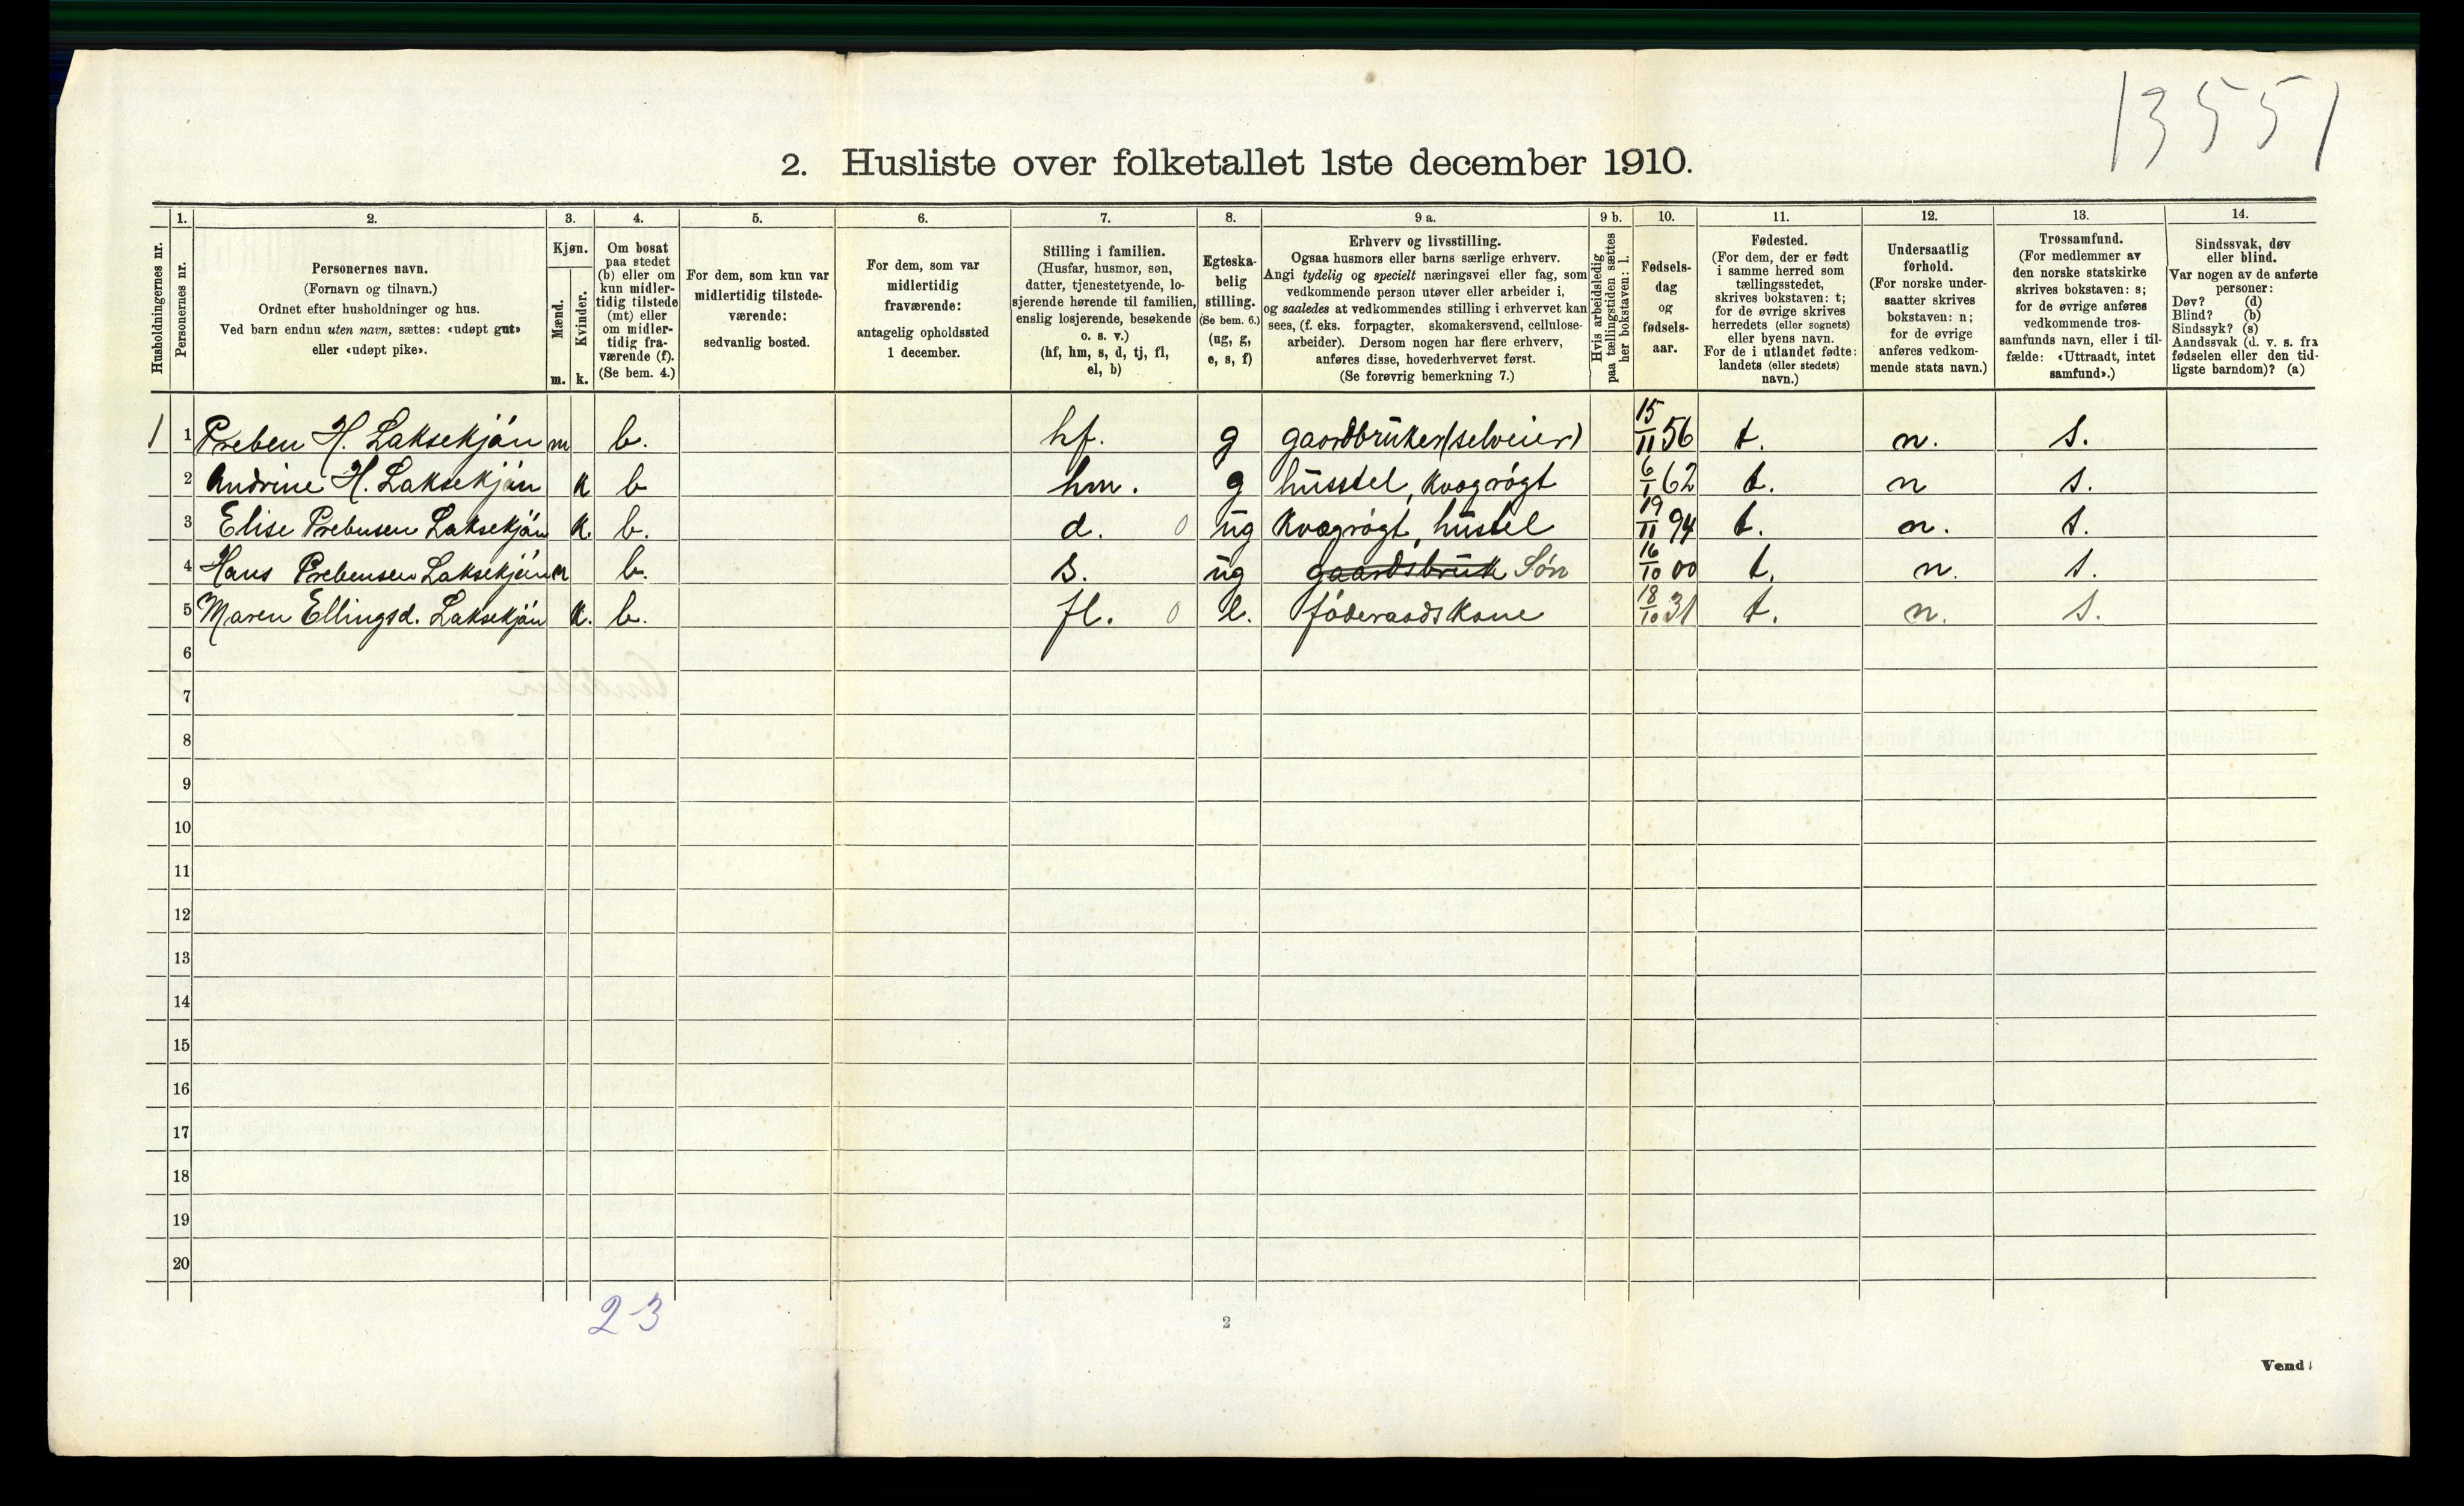 13551
2. Husliste over folketallet 1ste december 1910.
Husholdningernes nr.
1.
Personernes nr.
2.
Personernes navn.
(Fornavn og tilnavn.)
Ordnet efter husholdninger og hus.
Ved barn endnu uten navn, sættes: «udøpt gut»
eller «udøpt pike».
3.
Kjøn.
Mænd.
Kvinder.
m. k.
4.
Om bosat
paa stedet
(b) eller om
kun midler-
tidig tilstede
(mt) eller
om midler-
tidig fra-
værende (f).
(Se bem. 4.)
5.
For dem, som kun var
midlertidig tilstede-
værende:
sedvanlig bosted.
6.
For dem, som var
midlertidig
fraværende:
antagelig opholdssted
1 december.
7.
Stilling i familien.
(Husfar, husmor, søn,
datter, tjenestetyende, lo-
sjerende hørende til familien,
enslig losjerende, besøkende
o. s. v.)
(hf, hm, s, d, tj, fl,
el, b)
8.
Egteska-
belig
stilling.
(Se bem. 6.)
(ug, g,
e, s, f)
9 a.
Erhverv og livsstilling.
Ogsaa husmors eller barns særlige erhverv.
Angi tydelig og specielt næringsvei eller fag, som
vedkommende person utøver eller arbeider i,
og saaledes at vedkommendes stilling i erhvervet kan
sees, (f. eks. forpagter, skomakersvend, cellulose-
arbeider). Dersom nogen har flere erhverv,
anføres disse, hovederhvervet først.
(Se forøvrig bemerkning 7.)
9 b.
Hvis arbeidsledig
paa tællingstiden sættes
her bokstaven: l.
10.
Fødsels-
dag
og
fødsels-
aar.
11.
Fødested.
(For dem, der er født
i samme herred som
tællingsstedet,
skrives bokstaven: t;
for de øvrige skrives
herredets (eller sognets)
eller byens navn.
For de i utlandet fødte:
landets (eller stedets)
navn.)
12.
Undersaatlig
forhold.
(For norske under-
saatter skrives
bokstaven: n;
for de øvrige
anføres vedkom-
mende stats navn.)
13.
Trossamfund.
(For medlemmer av
den norske statskirke
skrives bokstaven: s;
for de øvrige anføres
vedkommende tros-
samfunds navn, eller i til-
fælde: «Uttraadt, intet
samfund».)
14.
Sindssvak, døv
eller blind.
Var nogen av de anførte
personer:
Døv? (d)
Blind? (b)
Sindssyk? (s)
Aandssvak (d. v. s. fra
fødselen eller den tid-
ligste barndom)? (a)
1 1 Preben H. Laksekjøn m b. hf. g gaardbruker (selveier) 15/11 56 t. n. s.
2 Andrine H. Laksekjøn k b hm. g husstel, kvægrøgt 6/1 62 t. n s.
3 Elise Prebensen Laksekjøn k. b. d. 0 ug kvægrøgt, hustel 19/11 94 t. n. s.
4 Hans Prebensen Laksekjøn m b. s. ug gaardsbruk Søn 16/10 00 t. n. s.
5 Maren Ellingsd. Laksekjøn k. b. fl. 0 e. føderaadskone 18/10 31 t. n. s.
6
7
8
9
10
11
12
13
14
15
16
17
18
19
20
2-3
2
Vend!